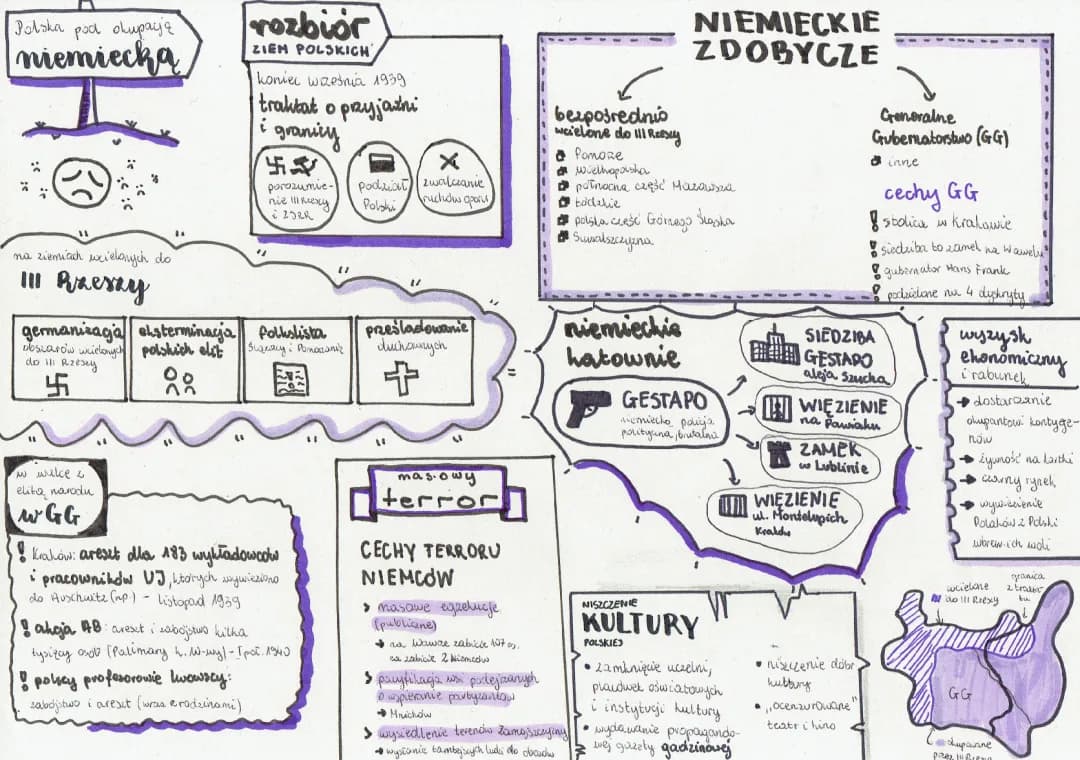 Polska pod okupacją
niemiecką
rozbiór
ZIEM POLSKICH
koniec września 1939
traktat o przyjaźni
i granicy
porozumie-
nie III Rzeszy
i ZSRR
podział
Polski
zwalczanie
ruchów oporu
NIEMIECKIE
ZDOBYCZE
bezpośrednio
wcielone do III Rzeszy
Pomorze
Wielkopolska
północna część Mazowsza
Łódzkie
polska część Górnego Śląska
Suwalszczyzna
Generalne
Gubernatorstwo (GG)
inne
cechy GG
stolica w Krakowie
siedziba to zamek na Wawelu
gubernator Hans Frank
podzielone na 4 dystrykty
na ziemiach wcielonych do
III Rzeszy
germanizacja
obszarów wcielonych
do III Rzeszy
eksterminacja
polskich elit
folkslista
Ślązacy i Pomorzanie
prześladowanie
duchownych
niemieckie
katownie
GESTAPO
niemiecka policja
polityczna, brutalna
SIEDZIBA
GESTAPO
aleja Szucha
WIĘZIENIE
na Pawiaku
ZAMEK
w Lublinie
WIĘZIENIE
ul. Montelupich
Kraków
wyzysk
ekonomiczny
i rabunek
→ dostarczanie
okupantowi kontynge-
nów
→ żywność na kartki
→ czarny rynek
→ wywiezienie
Polaków z Polski
wbrew ich woli
w walce z
elitą narodu
w GG
! Kraków: areszt dla 183 wykładowców
i pracowników UJ, których wywieziono
do Auschwitz (np.) - listopad 1939
! akcja AB: areszt i zabójstwo kilku
tysięcy osób (Palmiary k. W-wy) - I poł. 1940
! polscy profesorowie lwowscy:
zabójstwo i areszt (wraz z rodzinami)
masowy
terror
CECHY TERRORU
NIEMCÓW
> masowe egzekucje
(publiczne)
→ na Wawrze zabicie 107 os.
za zabicie 2 Niemców
> pacyfikacja wsi podejrzanych
o wspieranie partyzantów
→ Michniów
> wysiedlenie terenów Zamojszczyzny
→ wysłanie tamtejszych ludzi do obozów
NISZCZENIE
KULTURY
POLSKIEJ
• zamknięcie uczelni,
placówek oświatowych
i instytucji kultury
• wydawanie propagando-
wej gazety gadzinowej
• niszczenie dóbr
kultury
• „ocenzurowane"
teatr i kino
wcielone
do III Rzeszy
granica
z trakta-
tu
GG
okupowane
przez III Rzeszę